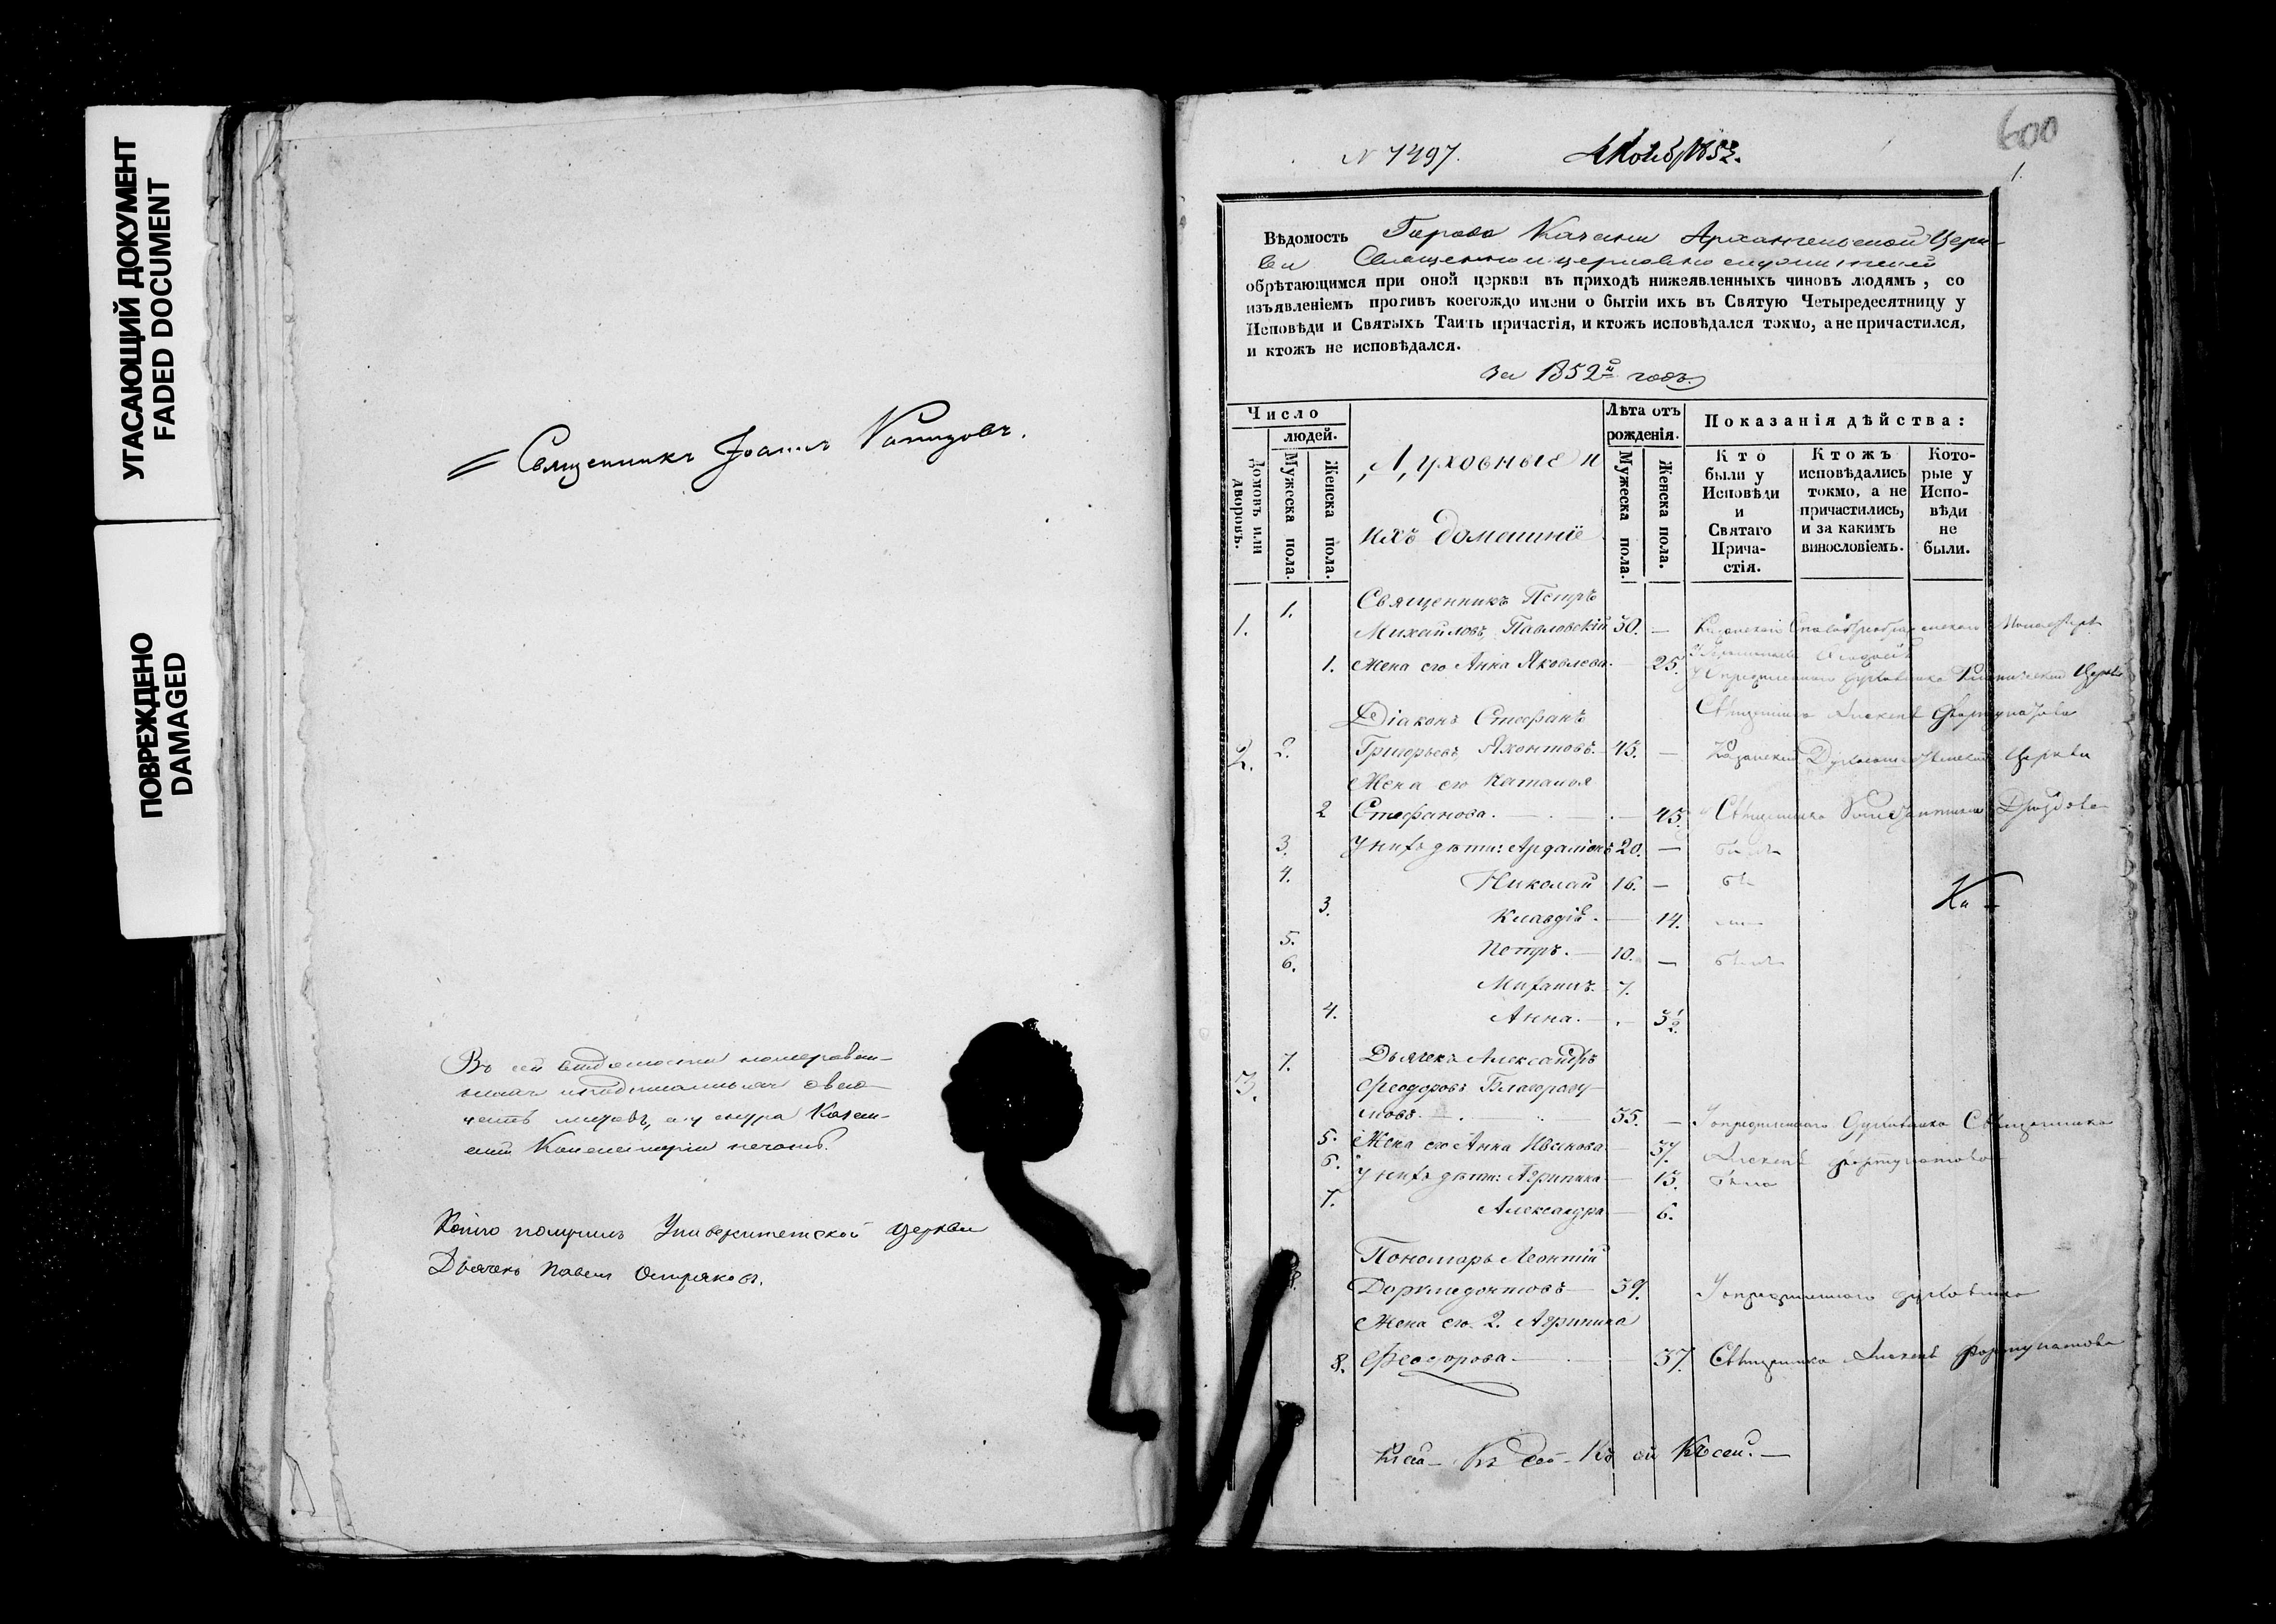 УГАСАЮЩИЙ ДОКУМЕНТ
FADED DOCUMENT
ПОВРЕЖДЕНО
DAMAGED
Священникъ Іоаннъ
Въ сей вѣдомости
листовъ, а у снура Казан-
ской Консисторіи печать.
Копію получилъ Университетской церкви
Дьячекъ Павелъ Остряковъ.
600
N 7497.
1.
Вѣдомость Города Казани Архангельской Церк-
ви Священно и церковно служителей
обрѣтающимся при оной церкви въ приходѣ нижеявленныхъ чиновъ людямъ, со
изъявленіемъ противъ коегождо имени о бытіи ихъ въ Святую Четыредесятницу у
Исповѣди и Святыхъ Таинъ причастія, и ктожъ исповѣдался токмо, а не причастился,
и ктожъ не исповѣдался.
за 1852й годъ.
Число
людей.
Домовъ или дворовъ.
Мужеска пола.
Женска пола.
Духовные и
ихъ домашніе
Лѣта отъ
рожденія.
Мужеска пола.
Женска пола.
Показанія дѣйства:
Кто
были у
Исповѣди
и
Святаго
Прича-
стія.
Ктожъ
исповѣдались
токмо, а не
причастились,
и за какимъ
винословіемъ.
Кото-
рые у
Испо-
вѣди
не
были.
1. Священникъ Петръ
1. Михайловъ Павловскій 30. — Казанскаго Спасопреображенскаго Монастыря
1. Жена его Анна Яковлева. — 25.
у опредѣленнаго духовника Церкви
Діаконъ Стефанъ Священника Алексѣя Фортунатова
2. 2. Григорьевъ Яхонтовъ. 45. — Казанской Духосошественской Церкви
Жена его Наталья
2 Стефанова. — 45. Священника Дроздова
3. У нихъ дѣти: Ардаліонъ 20. — былъ
4. Николай 16. —
3. Клавдія. — 14.
5. Петръ. — 10. —
6. Михаилъ. 7.
4. Анна. — 3½.
7. Дьячекъ Александръ
3. Феодоровъ Благоразу-
мовъ. 35. — У опредѣленнаго духовника Священника
5. Жена его Анна Иванова — 37. Алексѣя Фортунатова
6. У нихъ дѣти: Агрипина — 13. была
7. Александра — 6.
Пономарь Леонтій
8. Доримедонтовъ — 39. У опредѣленнаго духовника
Жена его 2. Агрипина
8. Феодорова. — 37. Священника Алексѣя Фортунатова